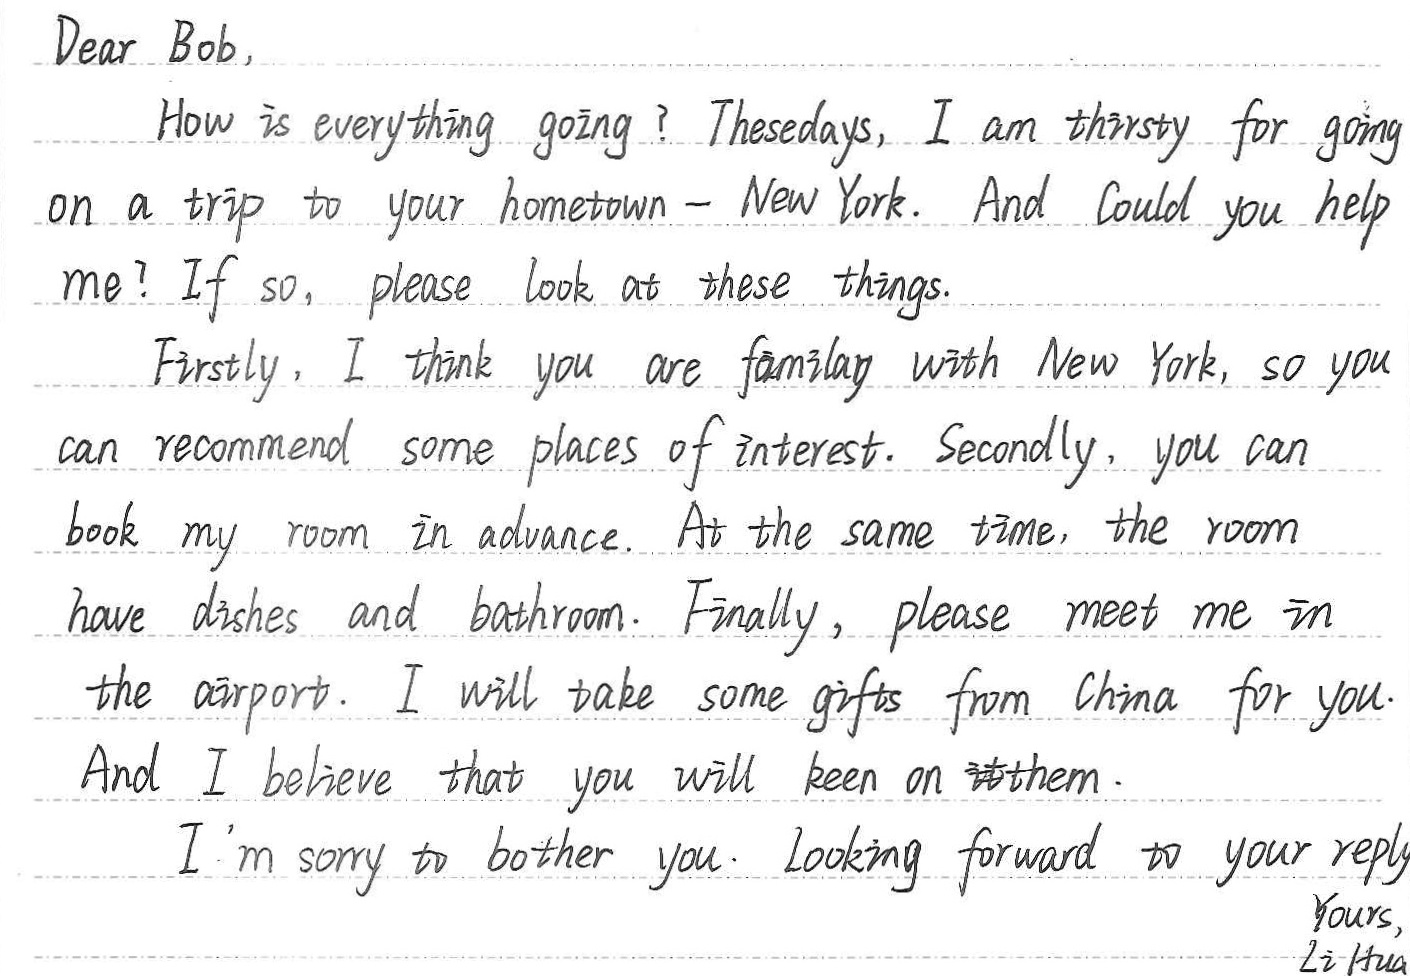 Dear Bob,
How is everything going? Thesedays, I am thirsty for going
on a trip to your hometown - New York. And Could you help
me? If so, please look at these things.
Firstly, I think you are familay with New York, so you
can recommend some places of interest. Secondly, you can
book my room in advance. At the same time, the room
have dishes and bathroom. Finally, please meet me in
the airport. I will take some gifts from China for you.
And I believe that you will keen on them.
I'm sorry to bother you. Looking forward to your reply
Yours,
Li Hua